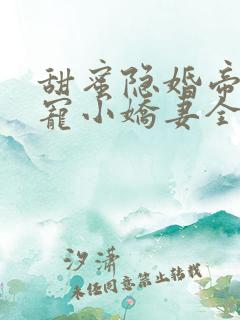 甜蜜隐婚帝
宠小娇妻全
汐潇
未经同意禁止转载